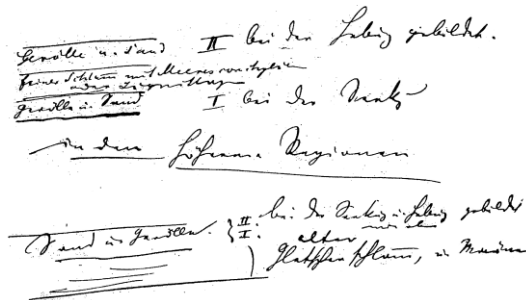 Gerölle u. Sand II bei der Hebung gebildet.
feiner Schlamm mit Meeres
oder
Gerölle u. Sand I bei der Senkg
in den höheren Regionen
Sand u. Gerölle. II: bei der Senkung u. Hebung gebildet
I: alter
Gletscherschlamm, u. Moräne